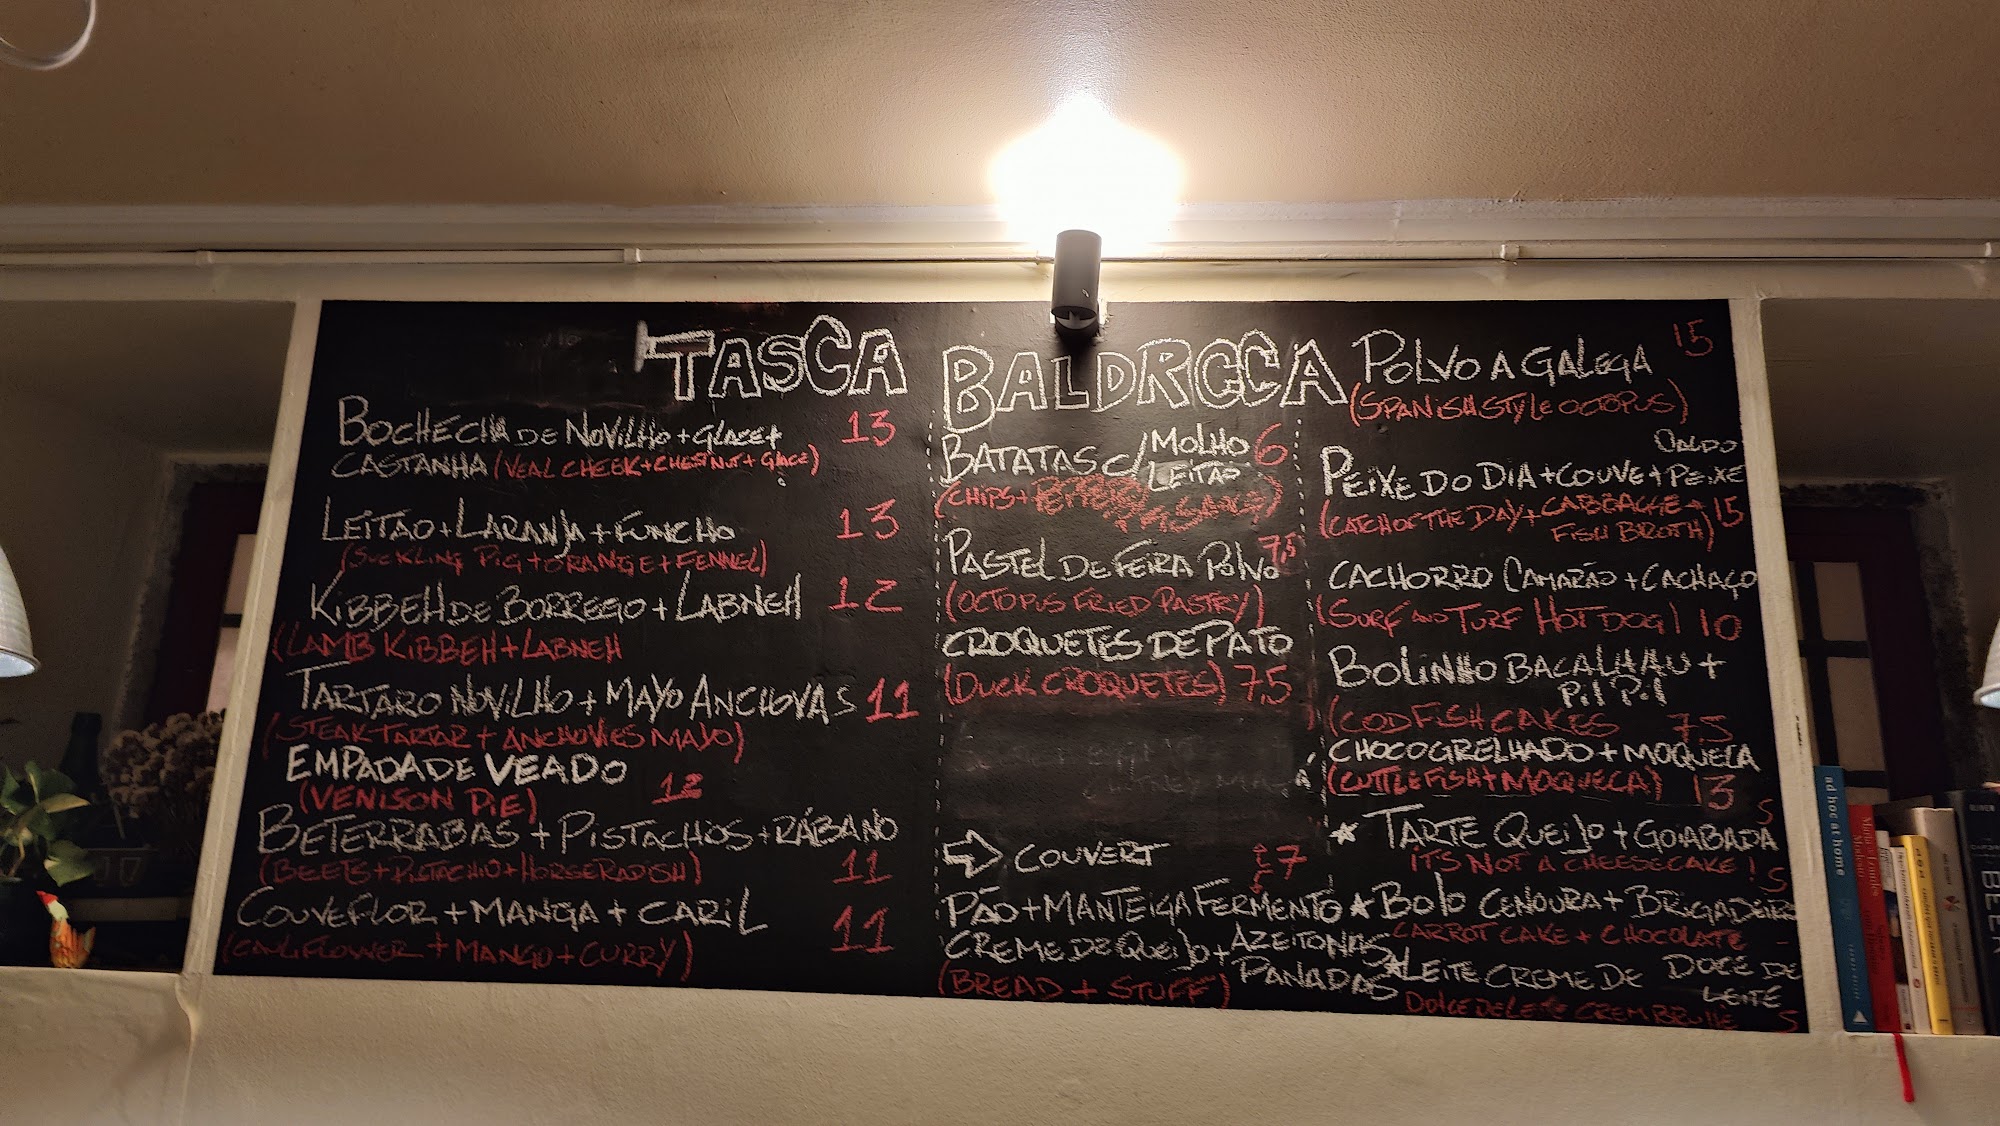 TASCA BALDRCCA
BOCHECHA DE NOVILHO + GLACE + 13
CASTANHA (VEAL CHEEK + CHESTNUT + GLACE)
LEITAO + LARANJA + FUNCHO 13
(SUCKLING PIG + ORANGE + FENNEL)
KIBBEH DE BORREGO + LABNEH 12
(LAMB KIBBEH + LABNEH
TARTARO NOVILHO + MAYO ANCHOVAS 11
(STEAK TARTAR + ANCHOVIES MAYO)
EMPADA DE VEADO
(VENISON PIE) 12
BETERRABAS + PISTACHIOS + RÁBANO
(BEETS + PISTACHIO + HORSERADISH) 11
COUVEFLOR + MANGA + CARIL
(CAULIFLOWER + MANGO + CURRY) 11
BATATAS C/ MOLHO 6
LEITAO
(CHIPS +
PASTEL DE FEIRA POLVO 7,5
(OCTOPUS FRIED PASTRY)
CROQUETES DE PATO
(DUCK CROQUETES) 7,5
COUVERT 7
PÃO + MANTEIGA FERMENTO
CREME DE QUEIJO + AZEITONAS
PANADAS
(BREAD + STUFF)
POLVO A GALEGA 15
(SPANISH STYLE OCTOPUS)
CALDO
PEIXE DO DIA + COUVE + PEIXE
(CATCH OF THE DAY + CABBAGE + 15
FISH BROTH)
CACHORRO CAMARÃO + CACHAÇO
(SURF AND TURF HOT DOG) 10
BOLINHO BACALHAU +
PIL PIL
(COD FISH CAKES 7,5
CHOCO GRELHADO + MOQUECA
(CUTTLEFISH + MOQUECA) 13
TARTE QUEIJO + GOIABADA 5
IT'S NOT A CHEESECAKE!
BOLO CENOURA + BRIGADEIRO 5
CARROT CAKE + CHOCOLATE
LEITE CREME DE DOCE DE
LEITE
DOLCE DE LEITE CREM BRULLE 5
ad hoc at home